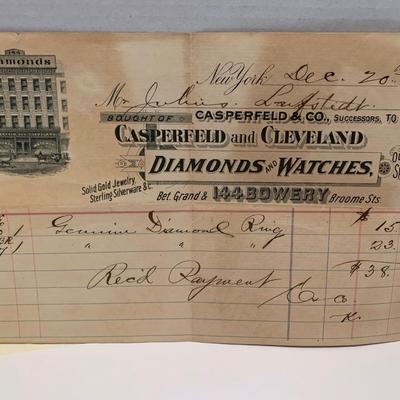 amonds
144
New York Dec. 20
Mr Julius
BOUGHT OF CASPERFELD & CO., SUCCESSORS, TO
CASPERFELD AND CLEVELAND
DIAMONDS AND WATCHES,
Solid Gold Jewelry,
Sterling Silverware &c.
Bet. Grand & 144 BOWERY Broome Sts.
1 Genuine Diamond Ring $15.
1 " " " 23.
Rec'd Payment $38.
C. & Co.
K.